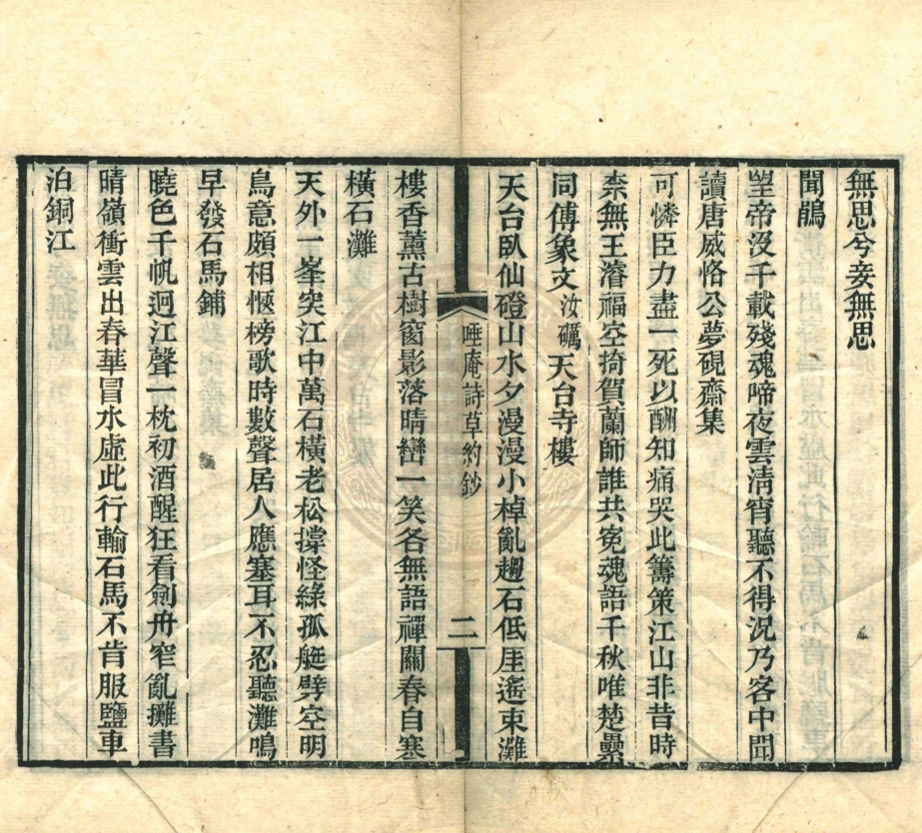 無思兮妾無思
聞鵑
望帝沒千載殘魂啼夜雲淸宵聽不得況乃客中聞
讀唐威恪公夢硯齋集
可憐臣力盡一死以酬知痛哭此籌策江山非昔時
柰無王濬福空掎賀蘭師誰共冤魂語千秋唯楚纍
同傅象文汝礪天台寺樓
天台臥仙磴山水夕漫漫小棹亂趨石低厓遙束灘
唾庵詩草約鈔
二
樓香薰古樹窗影落晴巒一笑各無語禪關春自寒
橫石灘
天外一峯突江中萬石橫老松撐怪綠孤艇劈空明
鳥意頗相愜榜歌時數聲居人應塞耳不忍聽灘鳴
早發石馬鋪
曉色千帆迥江聲一枕初酒醒狂看劍舟窄亂攤書
晴嶺衝雲出春華冒水虛此行輸石馬不肯服鹽車
泊銅江